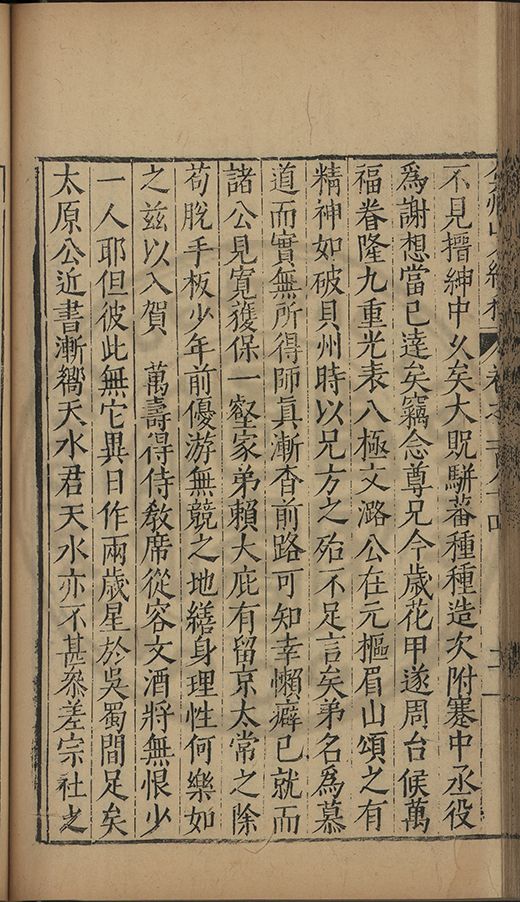 不見搢紳中久矣大貺駢蕃種種造次附蹇中丞役
爲謝想當已逹矣竊念尊兄今歲花甲遂周台候萬
福眷隆九重光表八極文潞公在元樞眉山頌之有
精神如破貝州時以兄方之殆不足言矣弟名爲慕
道而實無所得師眞漸杳前路可知幸懶癖已就而
諸公見寬獲保一壑家弟賴大庇有留京太常之除
苟脫手板少年前優游無競之地繕身理性何樂如
之兹以入賀　萬壽得侍敎席從容文酒將無恨少
一人耶但彼此無它異日作兩歲星於吳蜀間足矣
太原公近書漸嚮天水君天水亦不甚叅差宗社之